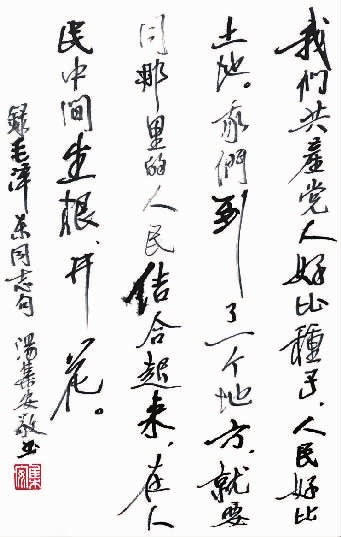 我們共產党人好比種子，人民好比
土地。我們到了一个地方，就要
同那里的人民结合起来，在人
民中间生根、开花。
錄毛澤东同志句 湯集安敬书
集安